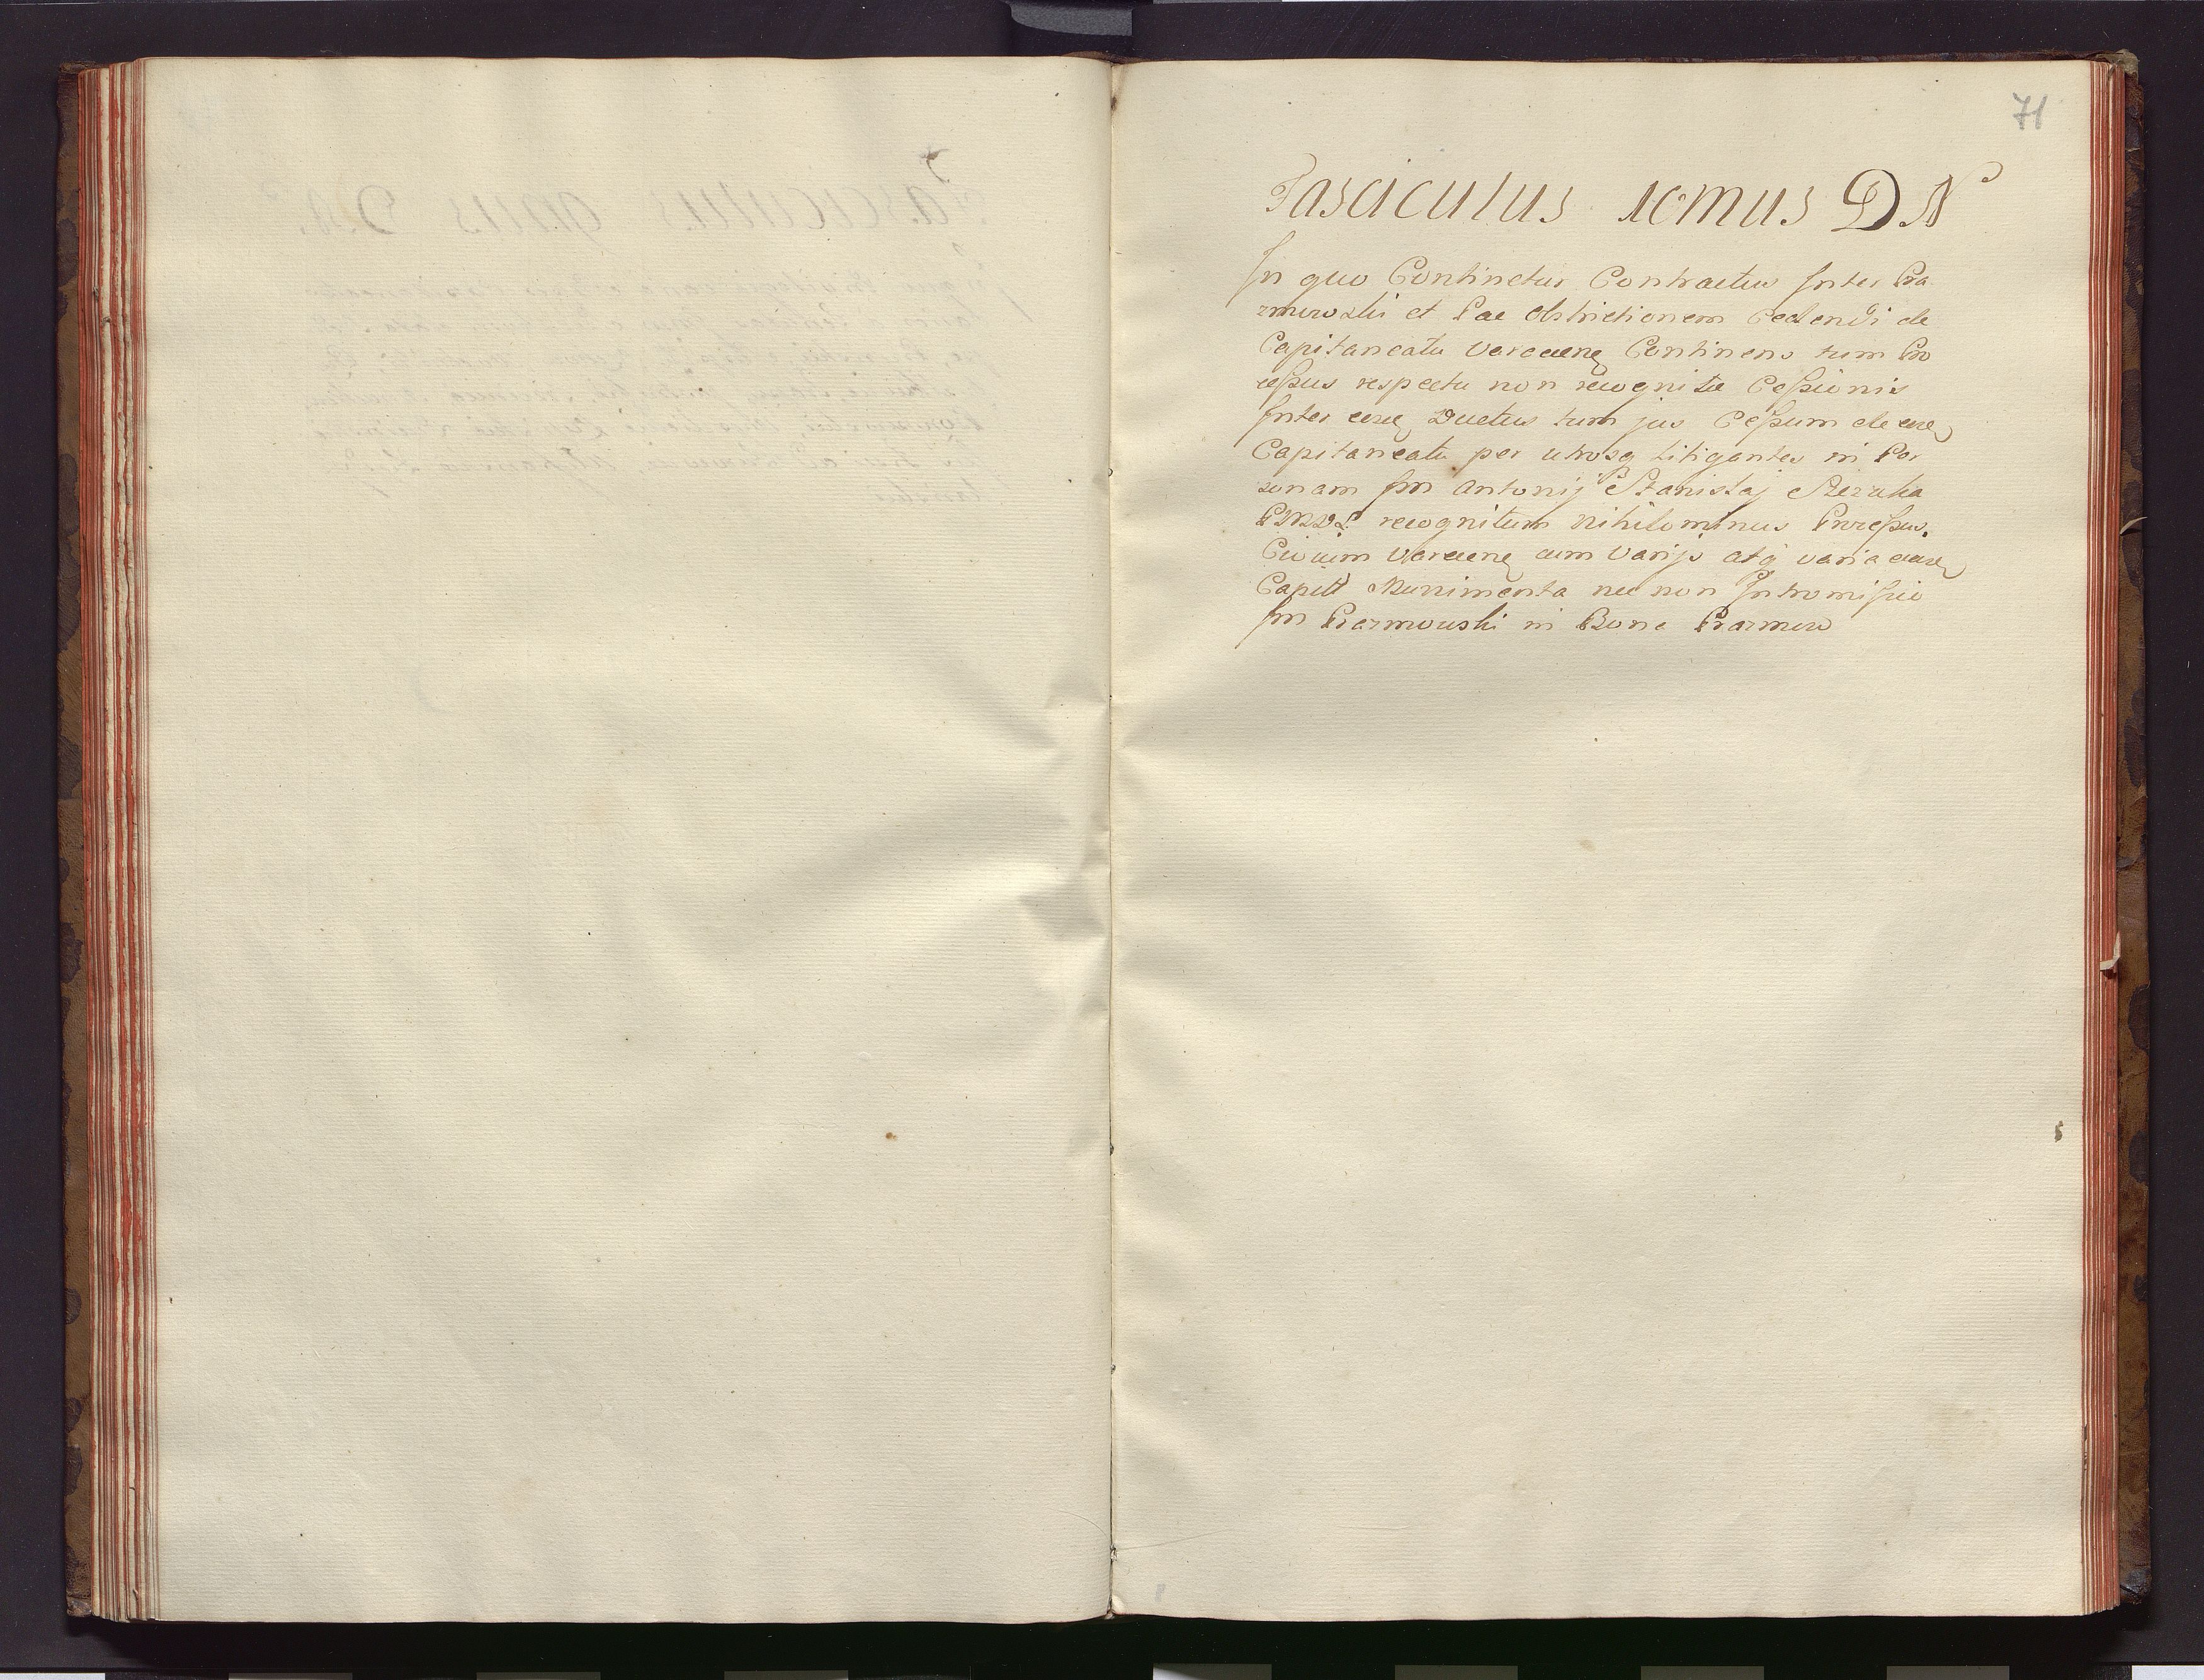 71
Fasciculus 10mus D N
In quo Continetur Contractus Inter Pra
zmowski et Pac Obstrictionem Cedendi de
Capitaneatu Varecen Continens tum Pro
cessus respectu non recognitæ Cessionis
Inter eos Ductus tum jus Cessum de eo
Capitaneatu per utrosq litigantes in Per
sonam Im Antonij Stanislaj Szczuka
recognitum nihilominus Processus
Civium Varecen cum varijs atq varia
Capitt Munimenta nec non Intromissio
Im Prazmowski in Bona Prazmow